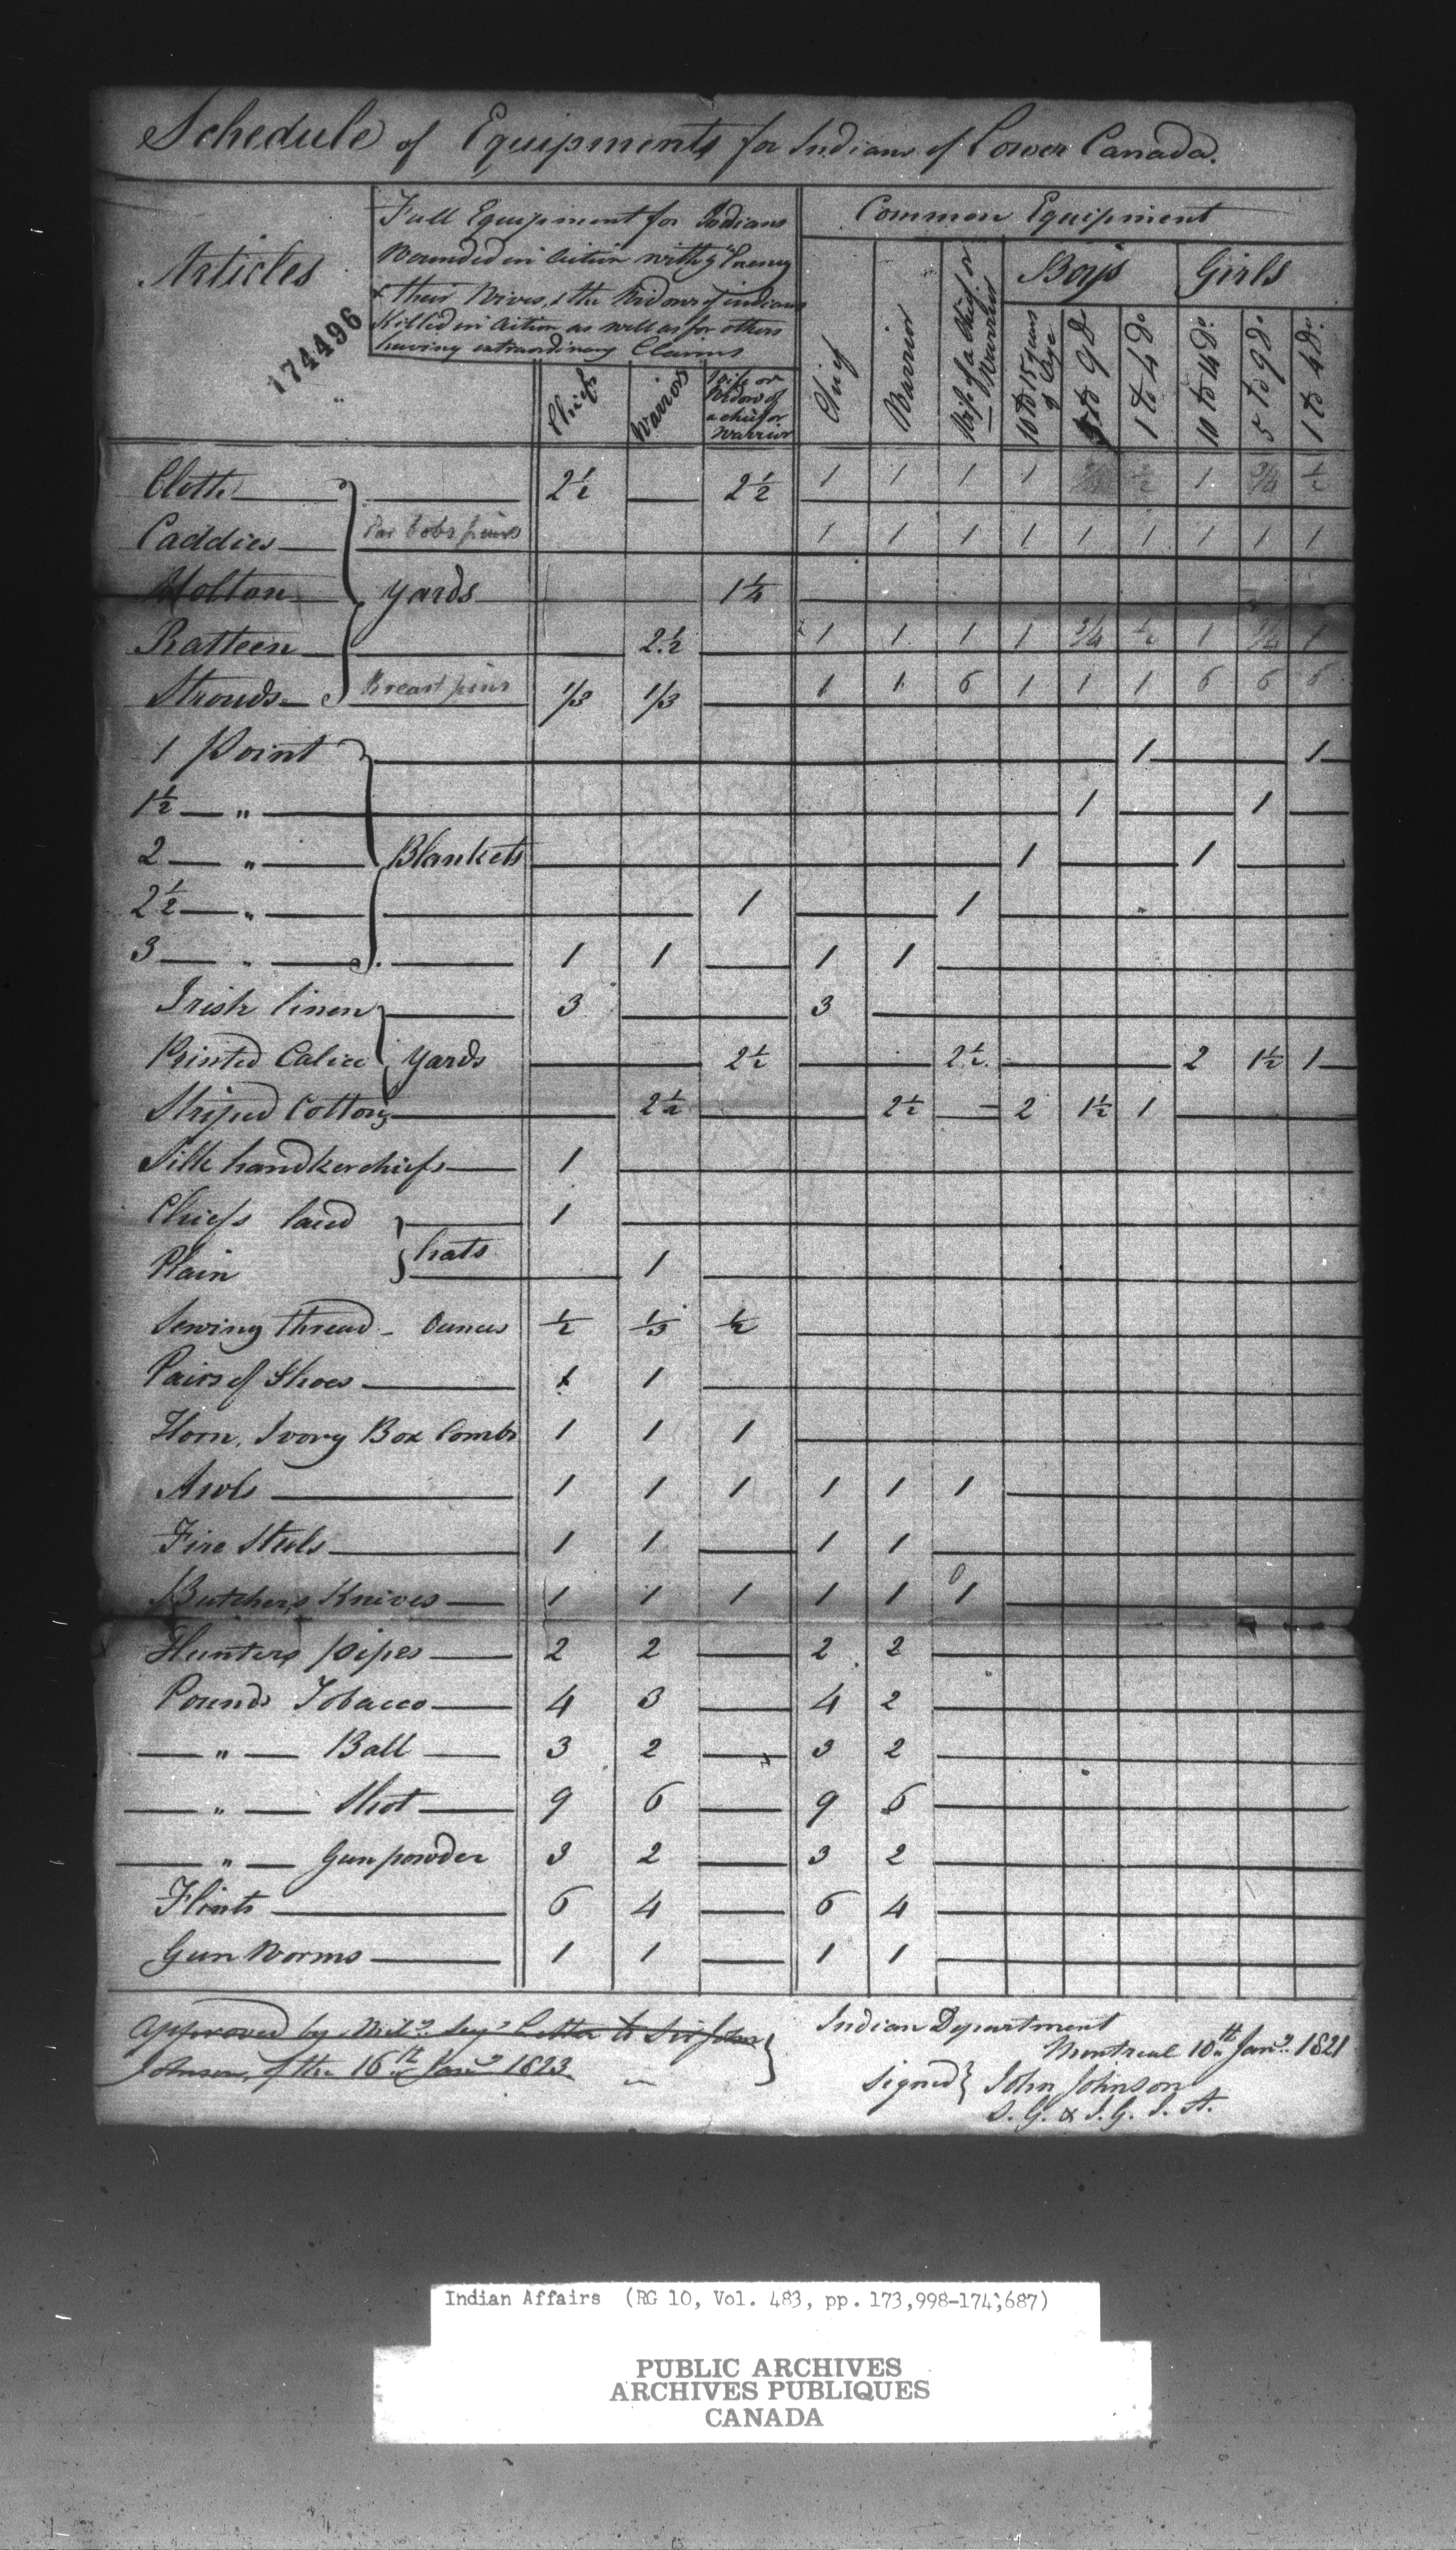 Schedule of Equipments for Indians of Lower Canada.
Articles
174496
Full Equipment for Indians
Wounded in Action with ye Enemy
& their Wives, & the Widows of indians
Killed in Action as well as for others
having extraordinary Claims
Chiefs
Warriors
Wife or Widow of a chief or Warrior
Common Equipment
Chief
Warrior
Wife of a Chief or Warrior
Boys
10 to 15 years of Age
5 to 9 do
1 to 4 do
Girls
10 to 14 do
5 to 9 do
1 to 4 do
Cloth 2½ — 2½ 1 1 1 1 ¾ ½ 1 ¾ ½
Caddies Ear bobs pairs 1 1 1 1 1 1 1 1 1
Molton yards 1¼
Ratteen 2½ 1 1 1 1 ¾ ½ 1 ¾ 1
Strouds Breast pins 1/3 1/3 1 1 6 1 1 1 6 6 6
1 Point 1 1
1½ — " — 1 1
2 — " — Blankets 1 1
2½ — " — 1 1
3 — " — 1 1 — 1 1
Irish linen 3 3
Printed Calico yards 2½ 2½ 2 1½ 1
Striped Cotton 2½ 2½ 2 1½ 1
Silk handkerchiefs 1
Chiefs laced 1
hats
Plain 1
Sewing thread - Ounces ½ 1/3 ½
Pairs of Shoes 1 1
Horn, Ivory Box Combs 1 1 1
Awls 1 1 1 1 1 1
Fire Steels 1 1 — 1 1
Butchers Knives 1 1 1 1 1 1 0
Hunters pipes 2 2 — 2 2
Pounds Tobacco 4 3 — 4 2
— " — Ball 3 2 — 3 2
— " — Shot 9 6 — 9 6
— " — Gunpowder 3 2 — 3 2
Flints 6 4 — 6 4
Gun Worms 1 1 — 1 1
Approved by Mily. Secy's Letter to Sir John
Johnson, of the 16th Jany 1823
Indian Department
Montreal 10th Jany. 1821
Signed } John Johnson
S. G. & I. G. I. A.
Indian Affairs (RG 10, Vol. 483, pp. 173,998-174,687)
PUBLIC ARCHIVES
ARCHIVES PUBLIQUES
CANADA